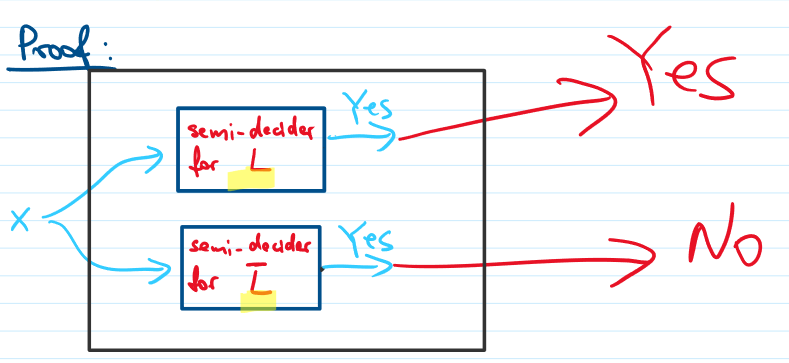 Proof:
Yes
semi-decider
for L
Yes
x
semi-decider
for L̅
Yes
No